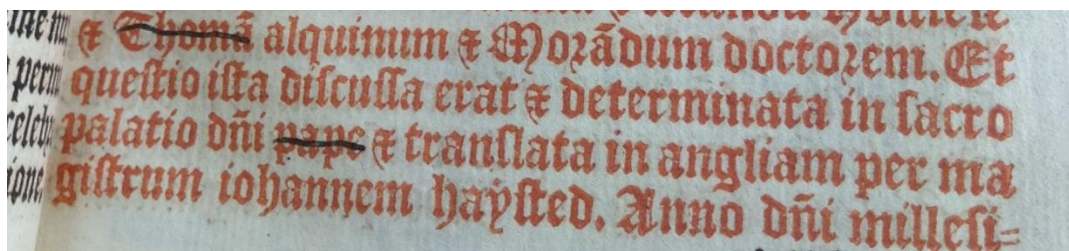 & Thomā alquinum & Morādum doctorem. Et
questio ista discussa erat & determinata in sacro
palatio dñi pape & translata in angliam per ma
gistrum iohannem haysted. Anno dñi millesi=